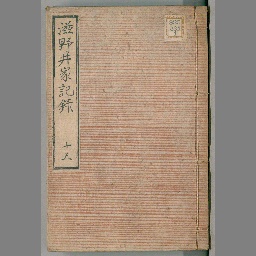 滋野井家記録
十五